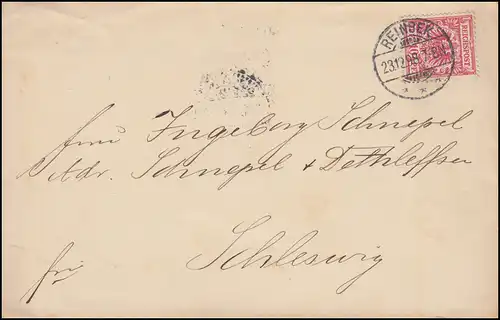 REINBEK
23.12.98. 7-8 N.
REICHSPOST
Frau Ingeborg Schnepel
Adr. Schnepel + Dethleffsen
Schleswig
frei